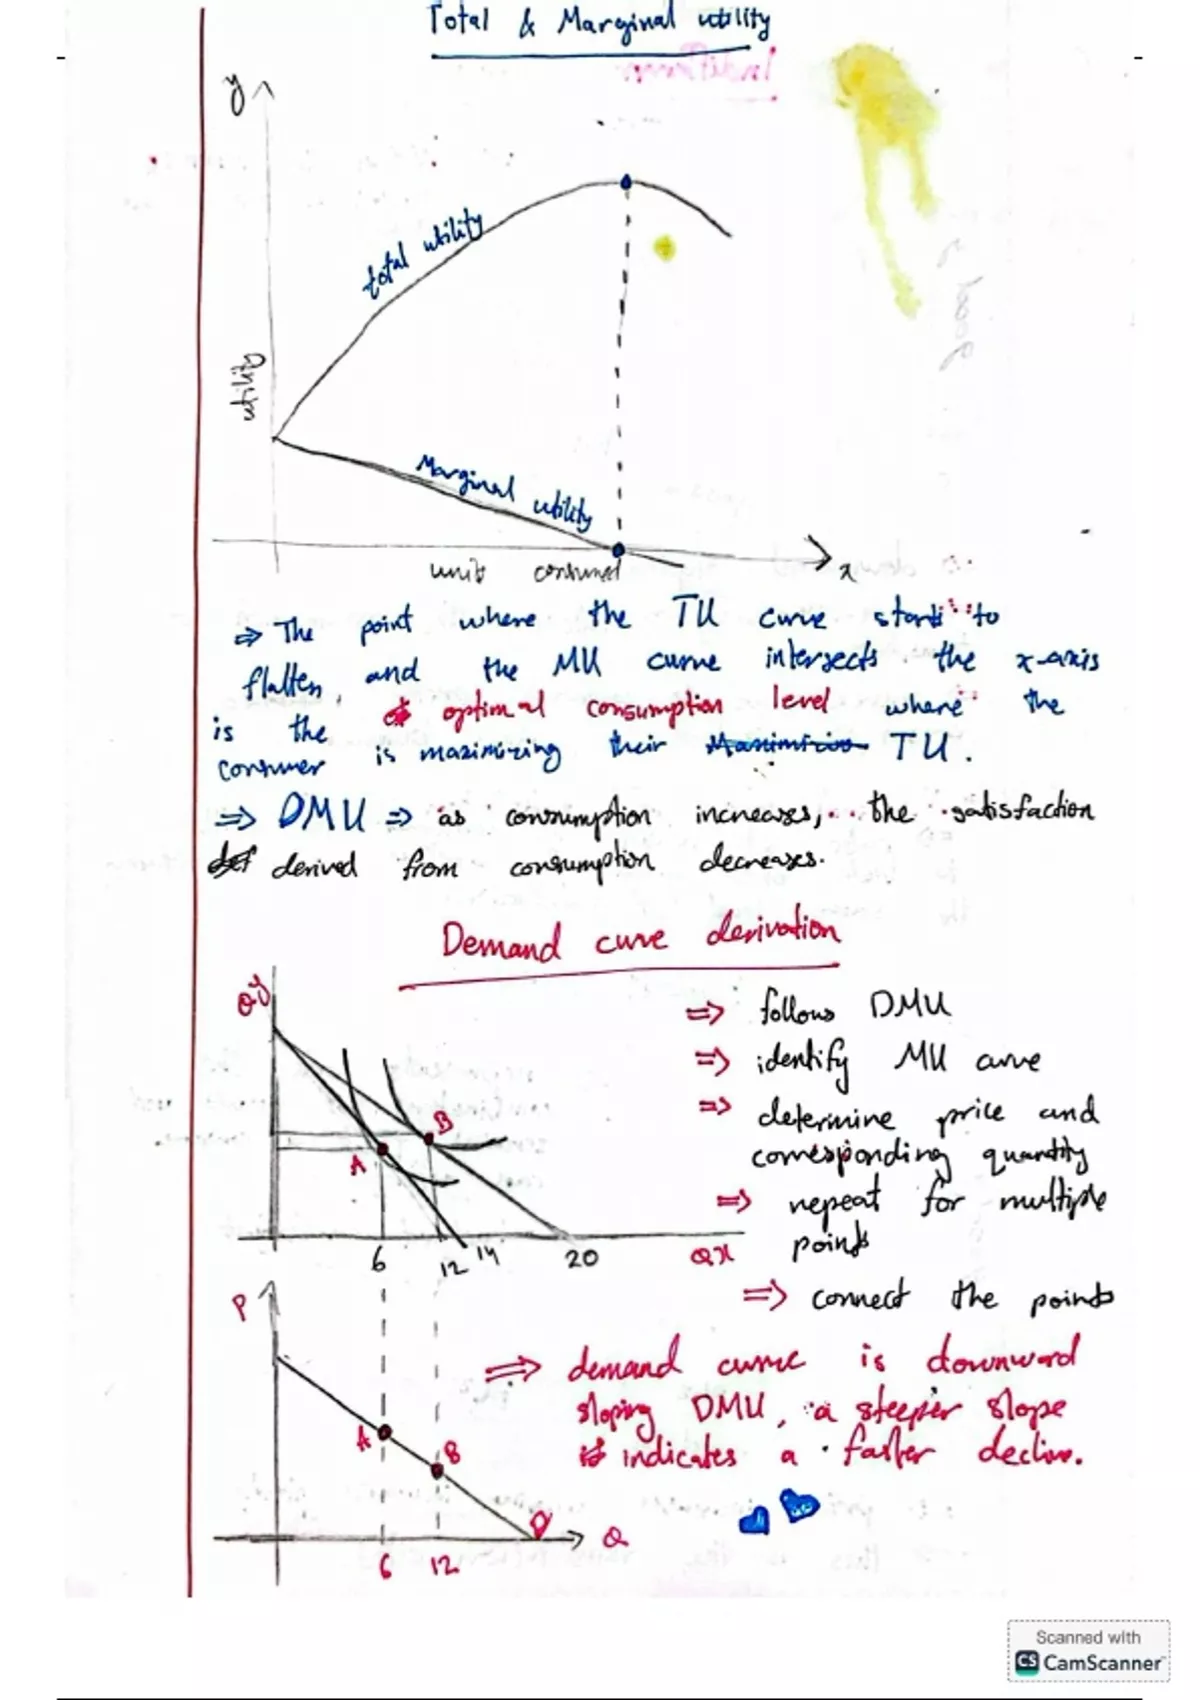 Total & Marginal utility
y
total utility
utility
Marginal utility
units consumed
x
⇒ The point where the TU curve starts to
flatten, and the MU curve intersects the x-axis
is the optimal consumption level where the
consumer is maximizing their TU.
⇒ DMU ⇒ as consumption increases, the satisfaction
derived from consumption decreases.
Demand curve derivation
Qy
A
B
6 12 14 20 Qx
⇒ follows DMU
⇒ identify MU curve
⇒ determine price and
corresponding quantity
⇒ repeat for multiple
points
⇒ connect the points
P
A
B
D
Q
6 12
⇒ demand curve is downward
sloping DMU, a steeper slope
indicates a faster decline.
Scanned with
CS CamScanner